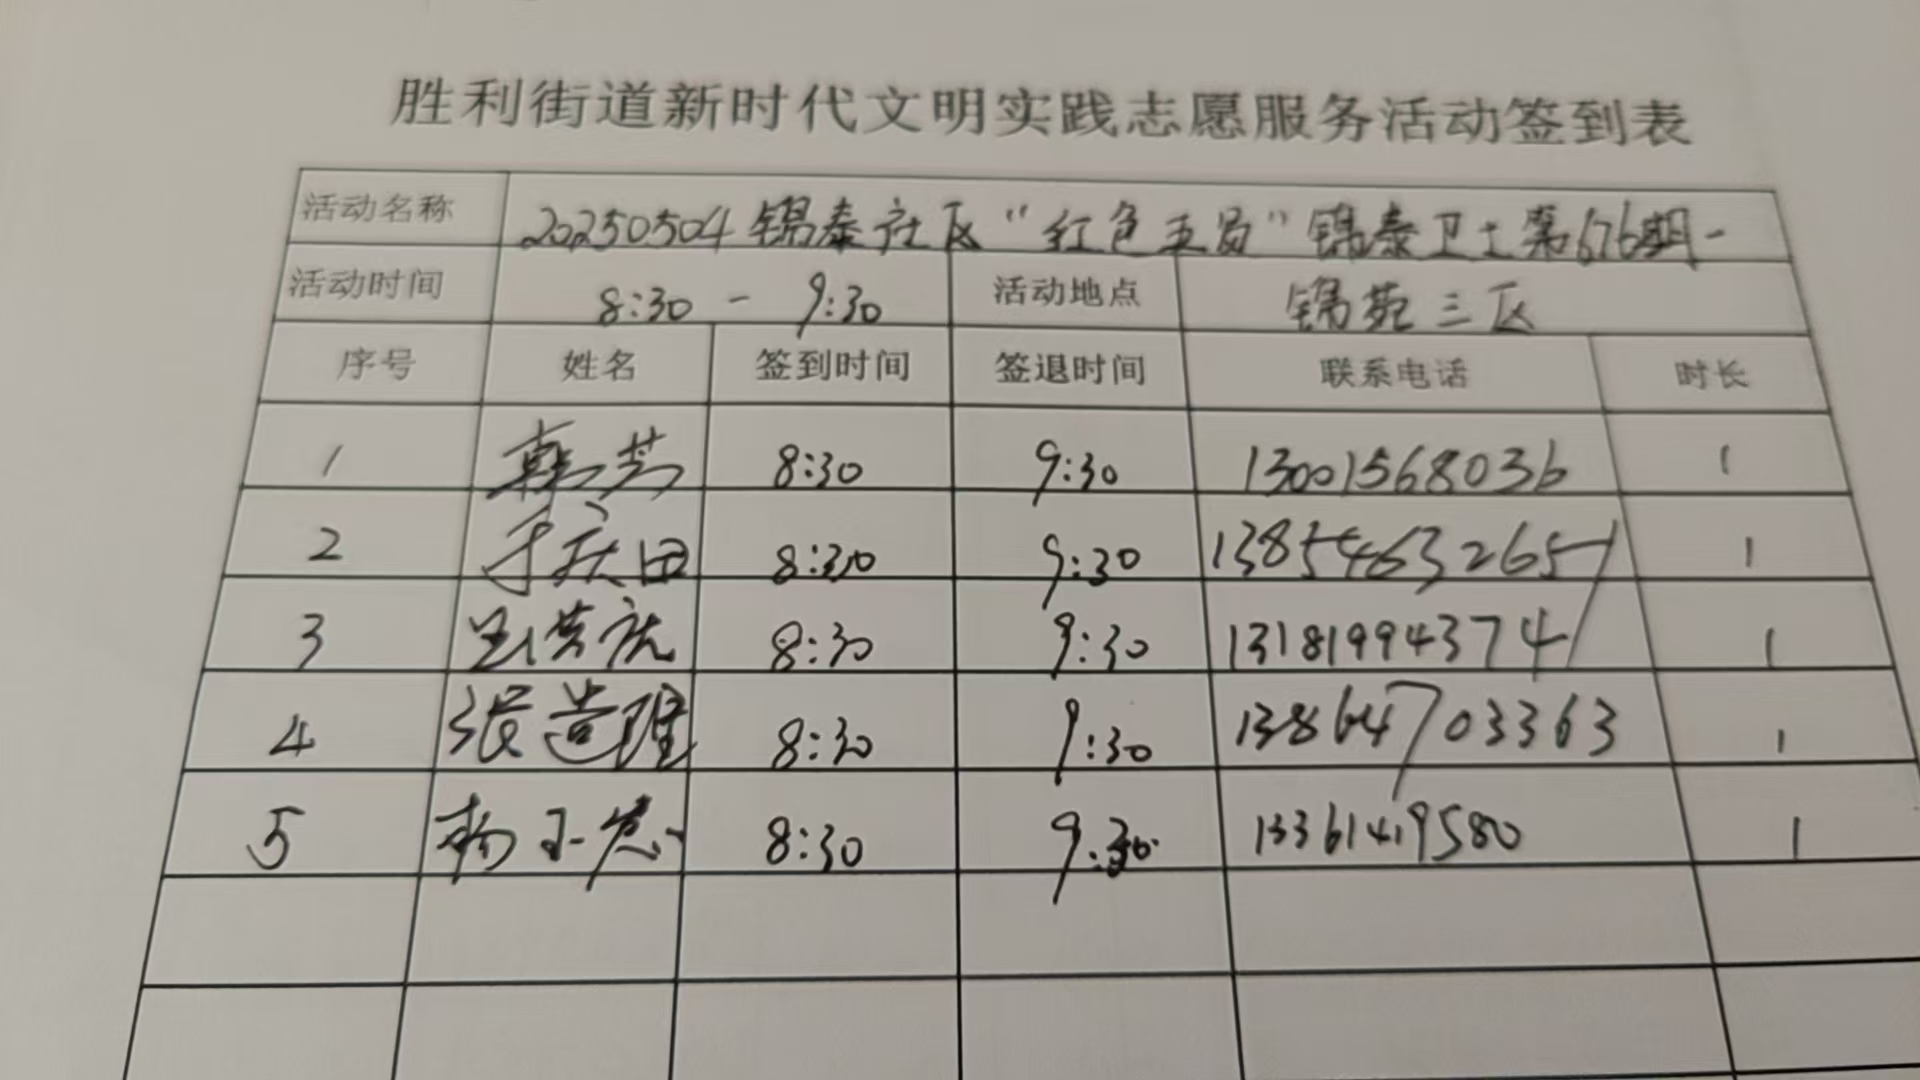 胜利街道新时代文明实践志愿服务活动签到表
活动名称 20250504锦泰社区“红色五员”锦泰卫士第676期-
活动时间 8:30 - 9:30 活动地点 锦苑三区
序号 姓名 签到时间 签退时间 联系电话 时长
1 韩芳 8:30 9:30 13001568036 1
2 于庆田 8:30 9:30 13854632651 1
3 8:30 9:30 13181994374 1
4 张道隆 8:30 9:30 13864703363 1
5 杨 8:30 9:30 13361419580 1